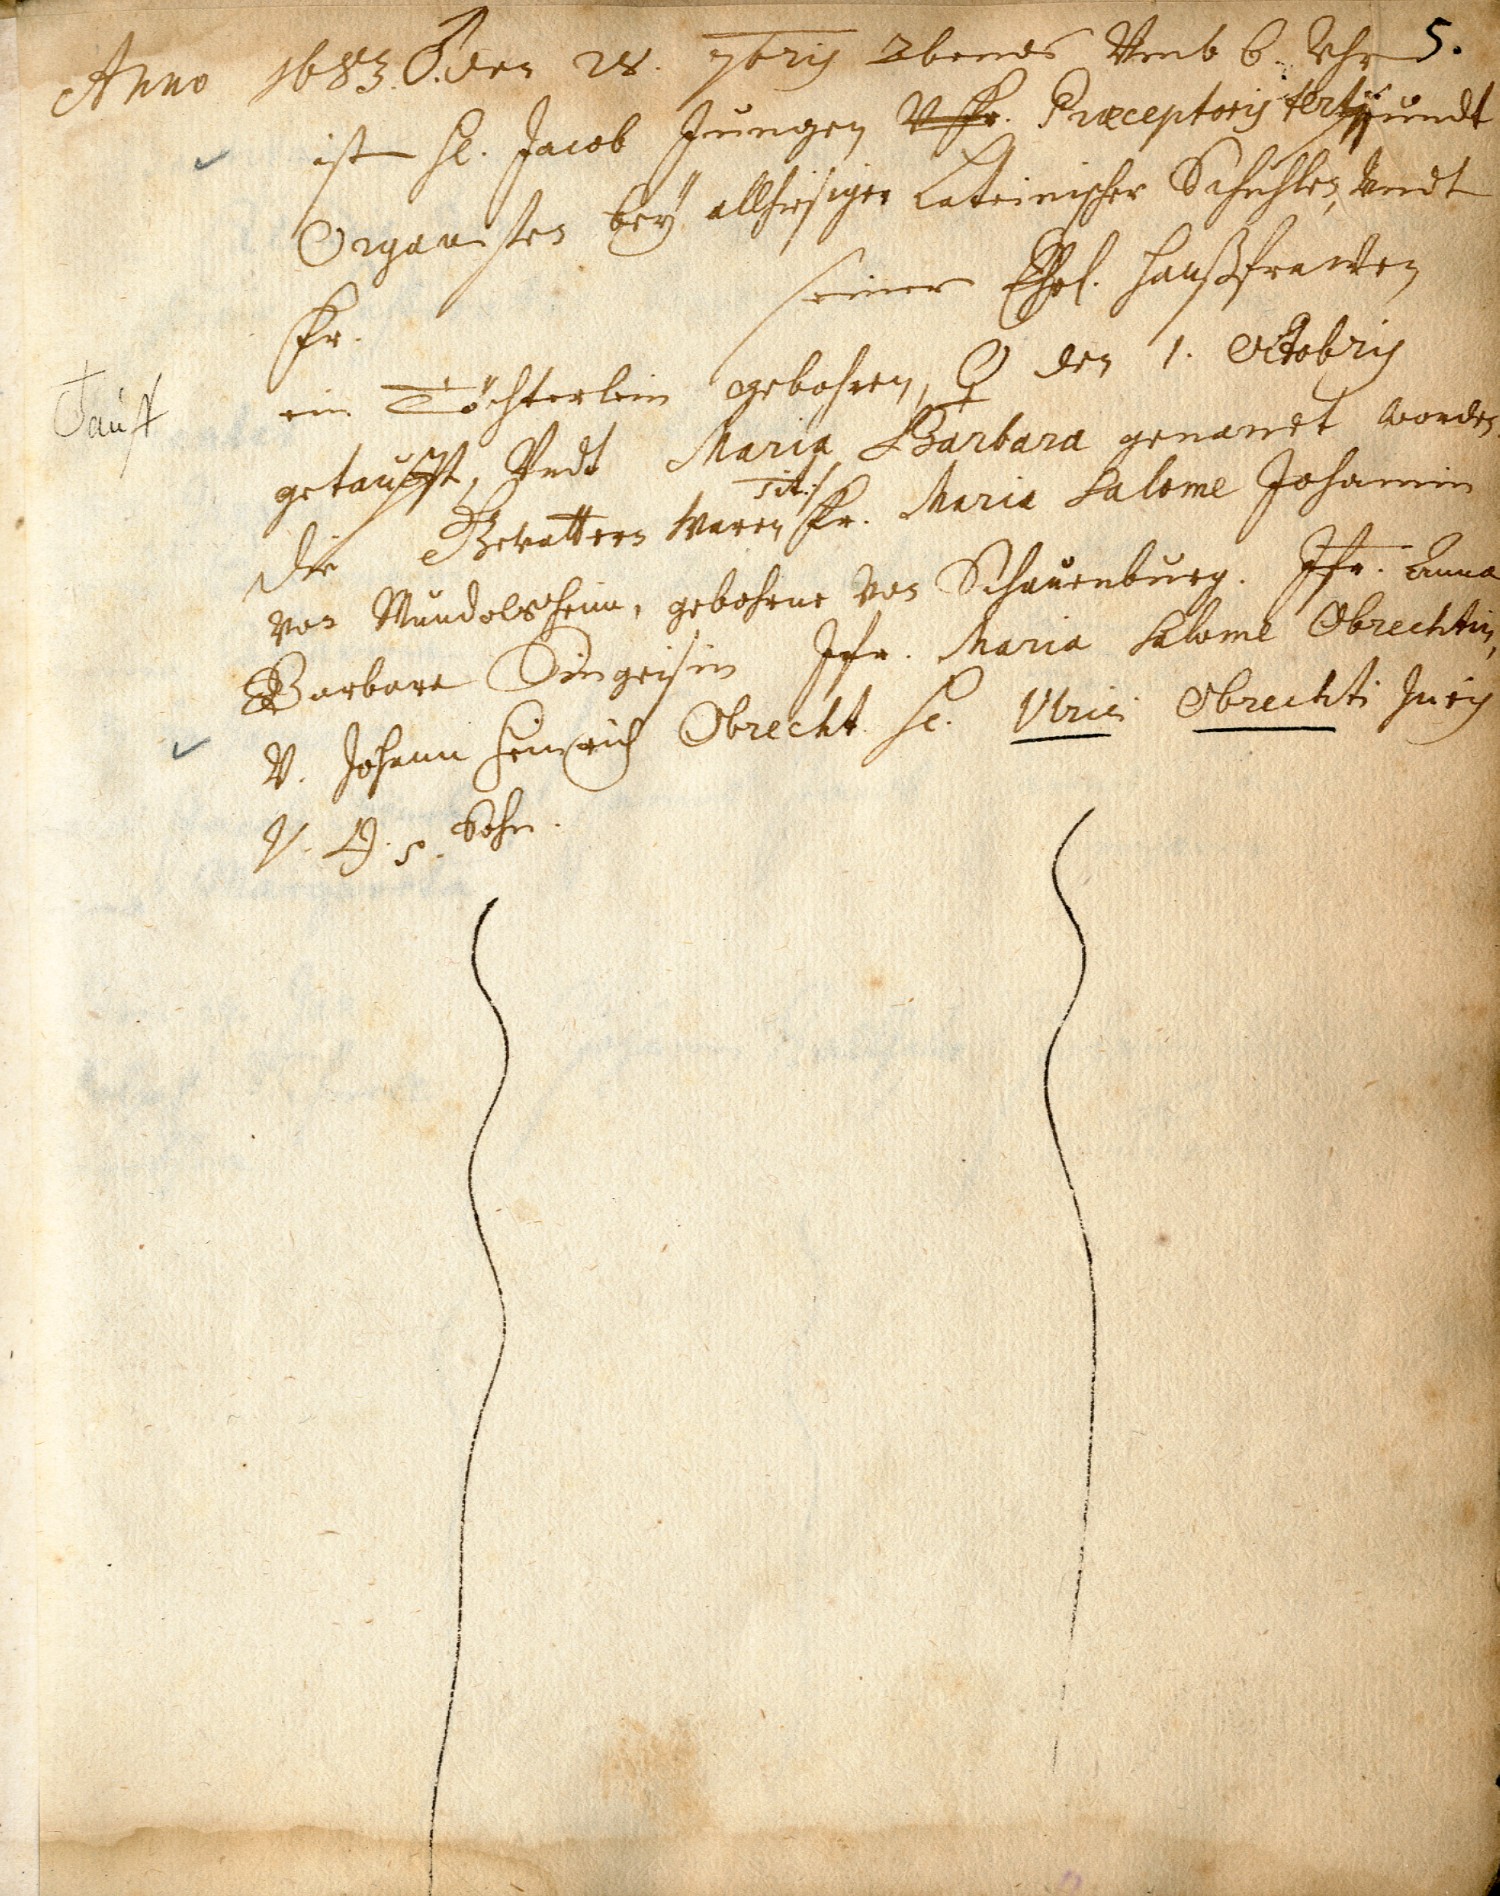 5.
Anno 1683. ♂. den 28. 7bris Abends Umb 6. Uhr
ist H. Jacob Jungen V Fr. Præceptoris tertij undt
Organisten bey allhiesiger Lateinischer Schuhlen, Undt
Fr. seiner Ehel. Haußfrawen
ein Töchterlein gebohren, ♀ den 1. Octobris
Tauf
getaufft, Undt Maria Barbara genanet worden.
Die Gevattern waren Tit: Fr. Maria Salome Johamin
von Mundolsheim, gebohrne von Schauenburg. Jfr. Anna
Barbara Jfr. Maria Salome Obrechtin,
V. Johann Heinrich Obrecht H. Ulrici Obrechti Juris
V. D. s. Sohn.